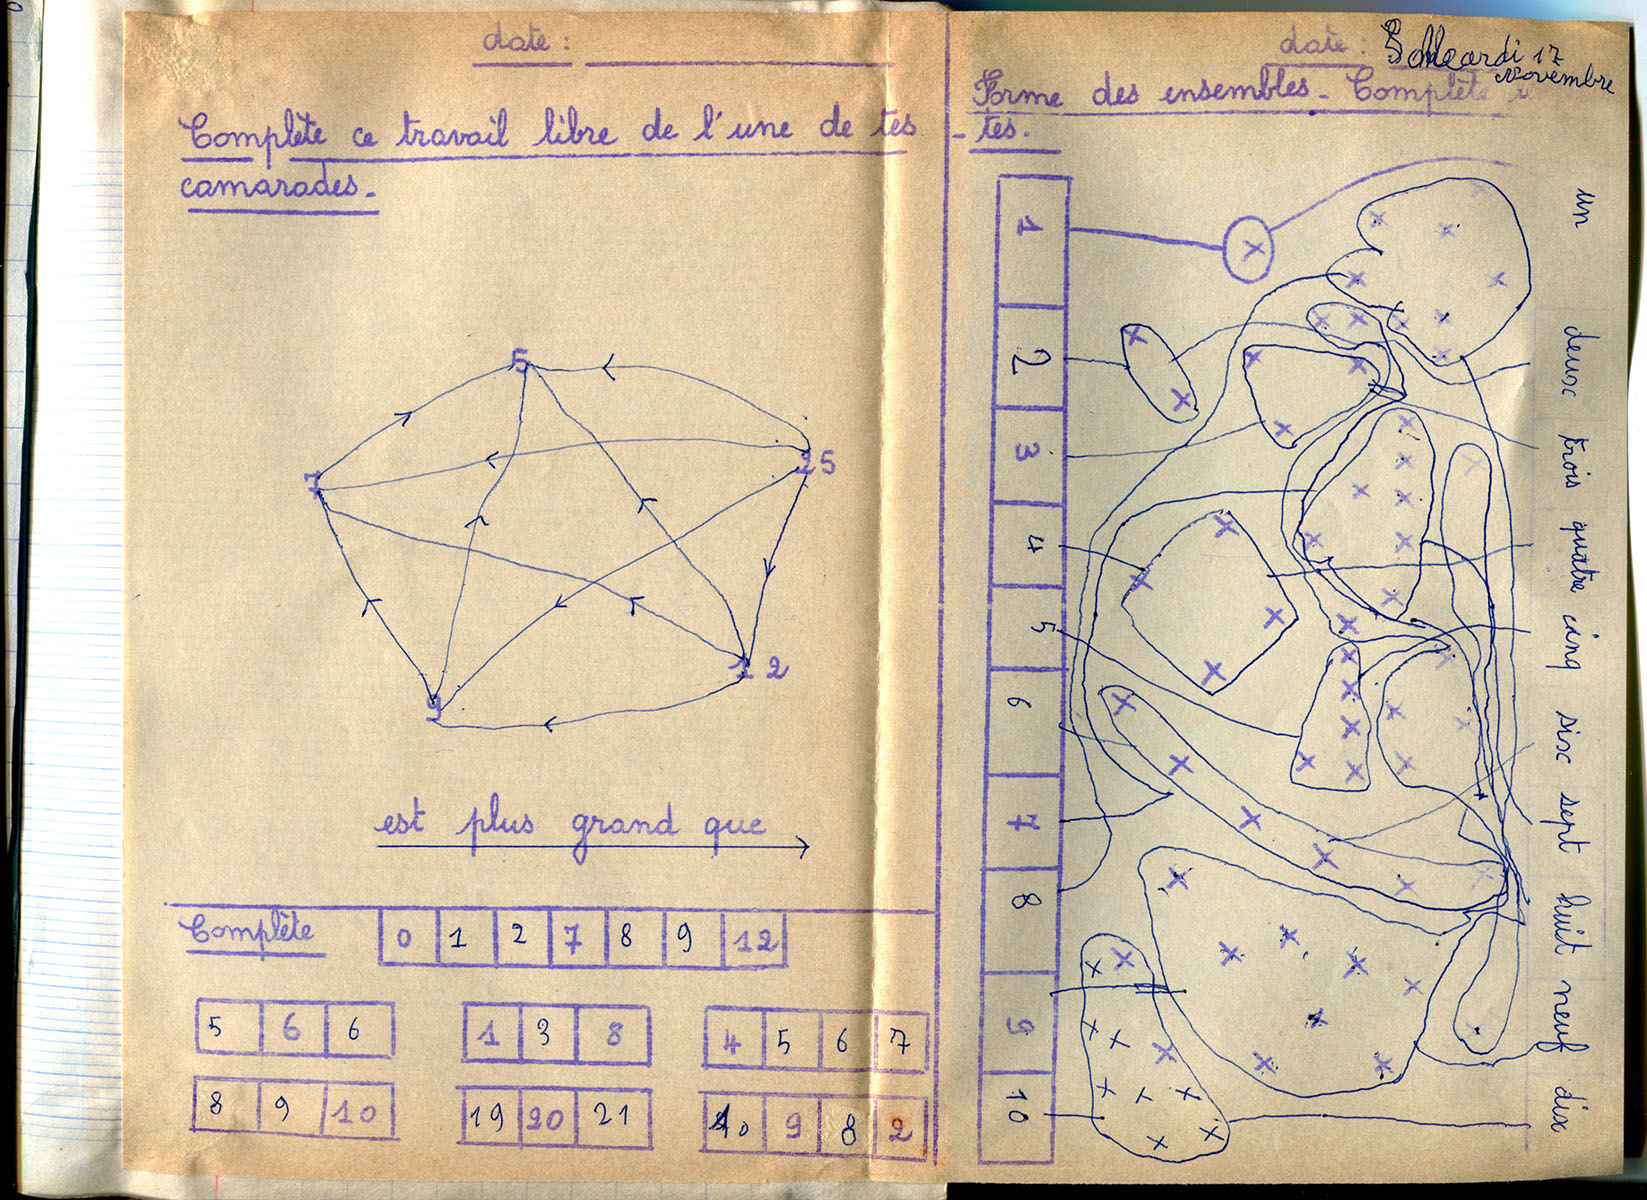 date :
Complète ce travail libre de l'une de tes
camarades.
5
7
15
12
9
est plus grand que
Complète 0 1 2 7 8 9 12
5 6 6
1 3 8
4 5 6 7
8 9 10
19 20 21
10 9 8 2
date : Mardi 17
Novembre
Forme des ensembles - Complète
- tes.
1
2
3
4
5
6
7
8
9
10
un
deux
trois
quatre
cinq
six
sept
huit
neuf
dix